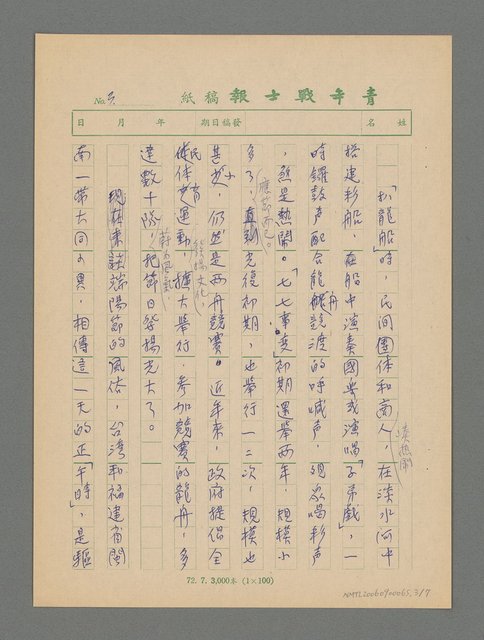 青年戰士報 稿紙 No. 3
姓名 發稿日期 年 月 日
「扒龍船」時，民間團体和商人，在淡水河中
湊熱鬧
搭建彩船，在船中演奏國樂或演唱「子弟戲」，一
時鑼鼓声配合龍舟競渡的呼喊声，觀眾喝彩声
，煞是熱鬧。「七七事變」初期還舉兩年，規模小
多了，應節而已。直到光復初期，也舉行一二次，規模也
甚少，仍然是西舟競賽。近年來，政府提倡全
民體育運動，擴大舉行，參加競賽的龍舟，多
達數十隊，把節日發揚光大了。
現在來談端陽節的風俗，台灣和福建省閩
南一帶大同小異，相傳這一天的正「午時」，是驅
72. 7. 3,000本 (1×100)
NMTL20060900065, 3/7